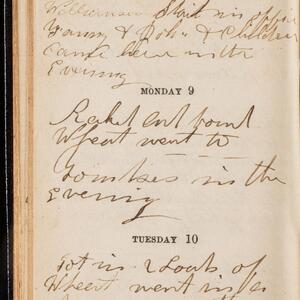 Williamson Staid in s of
Fanny & John & Children
Came here in the
Evening
MONDAY 9
Raked and bound
Wheat went to
in the
Evening
TUESDAY 10
Got in 2 Loads of
Wheat went in